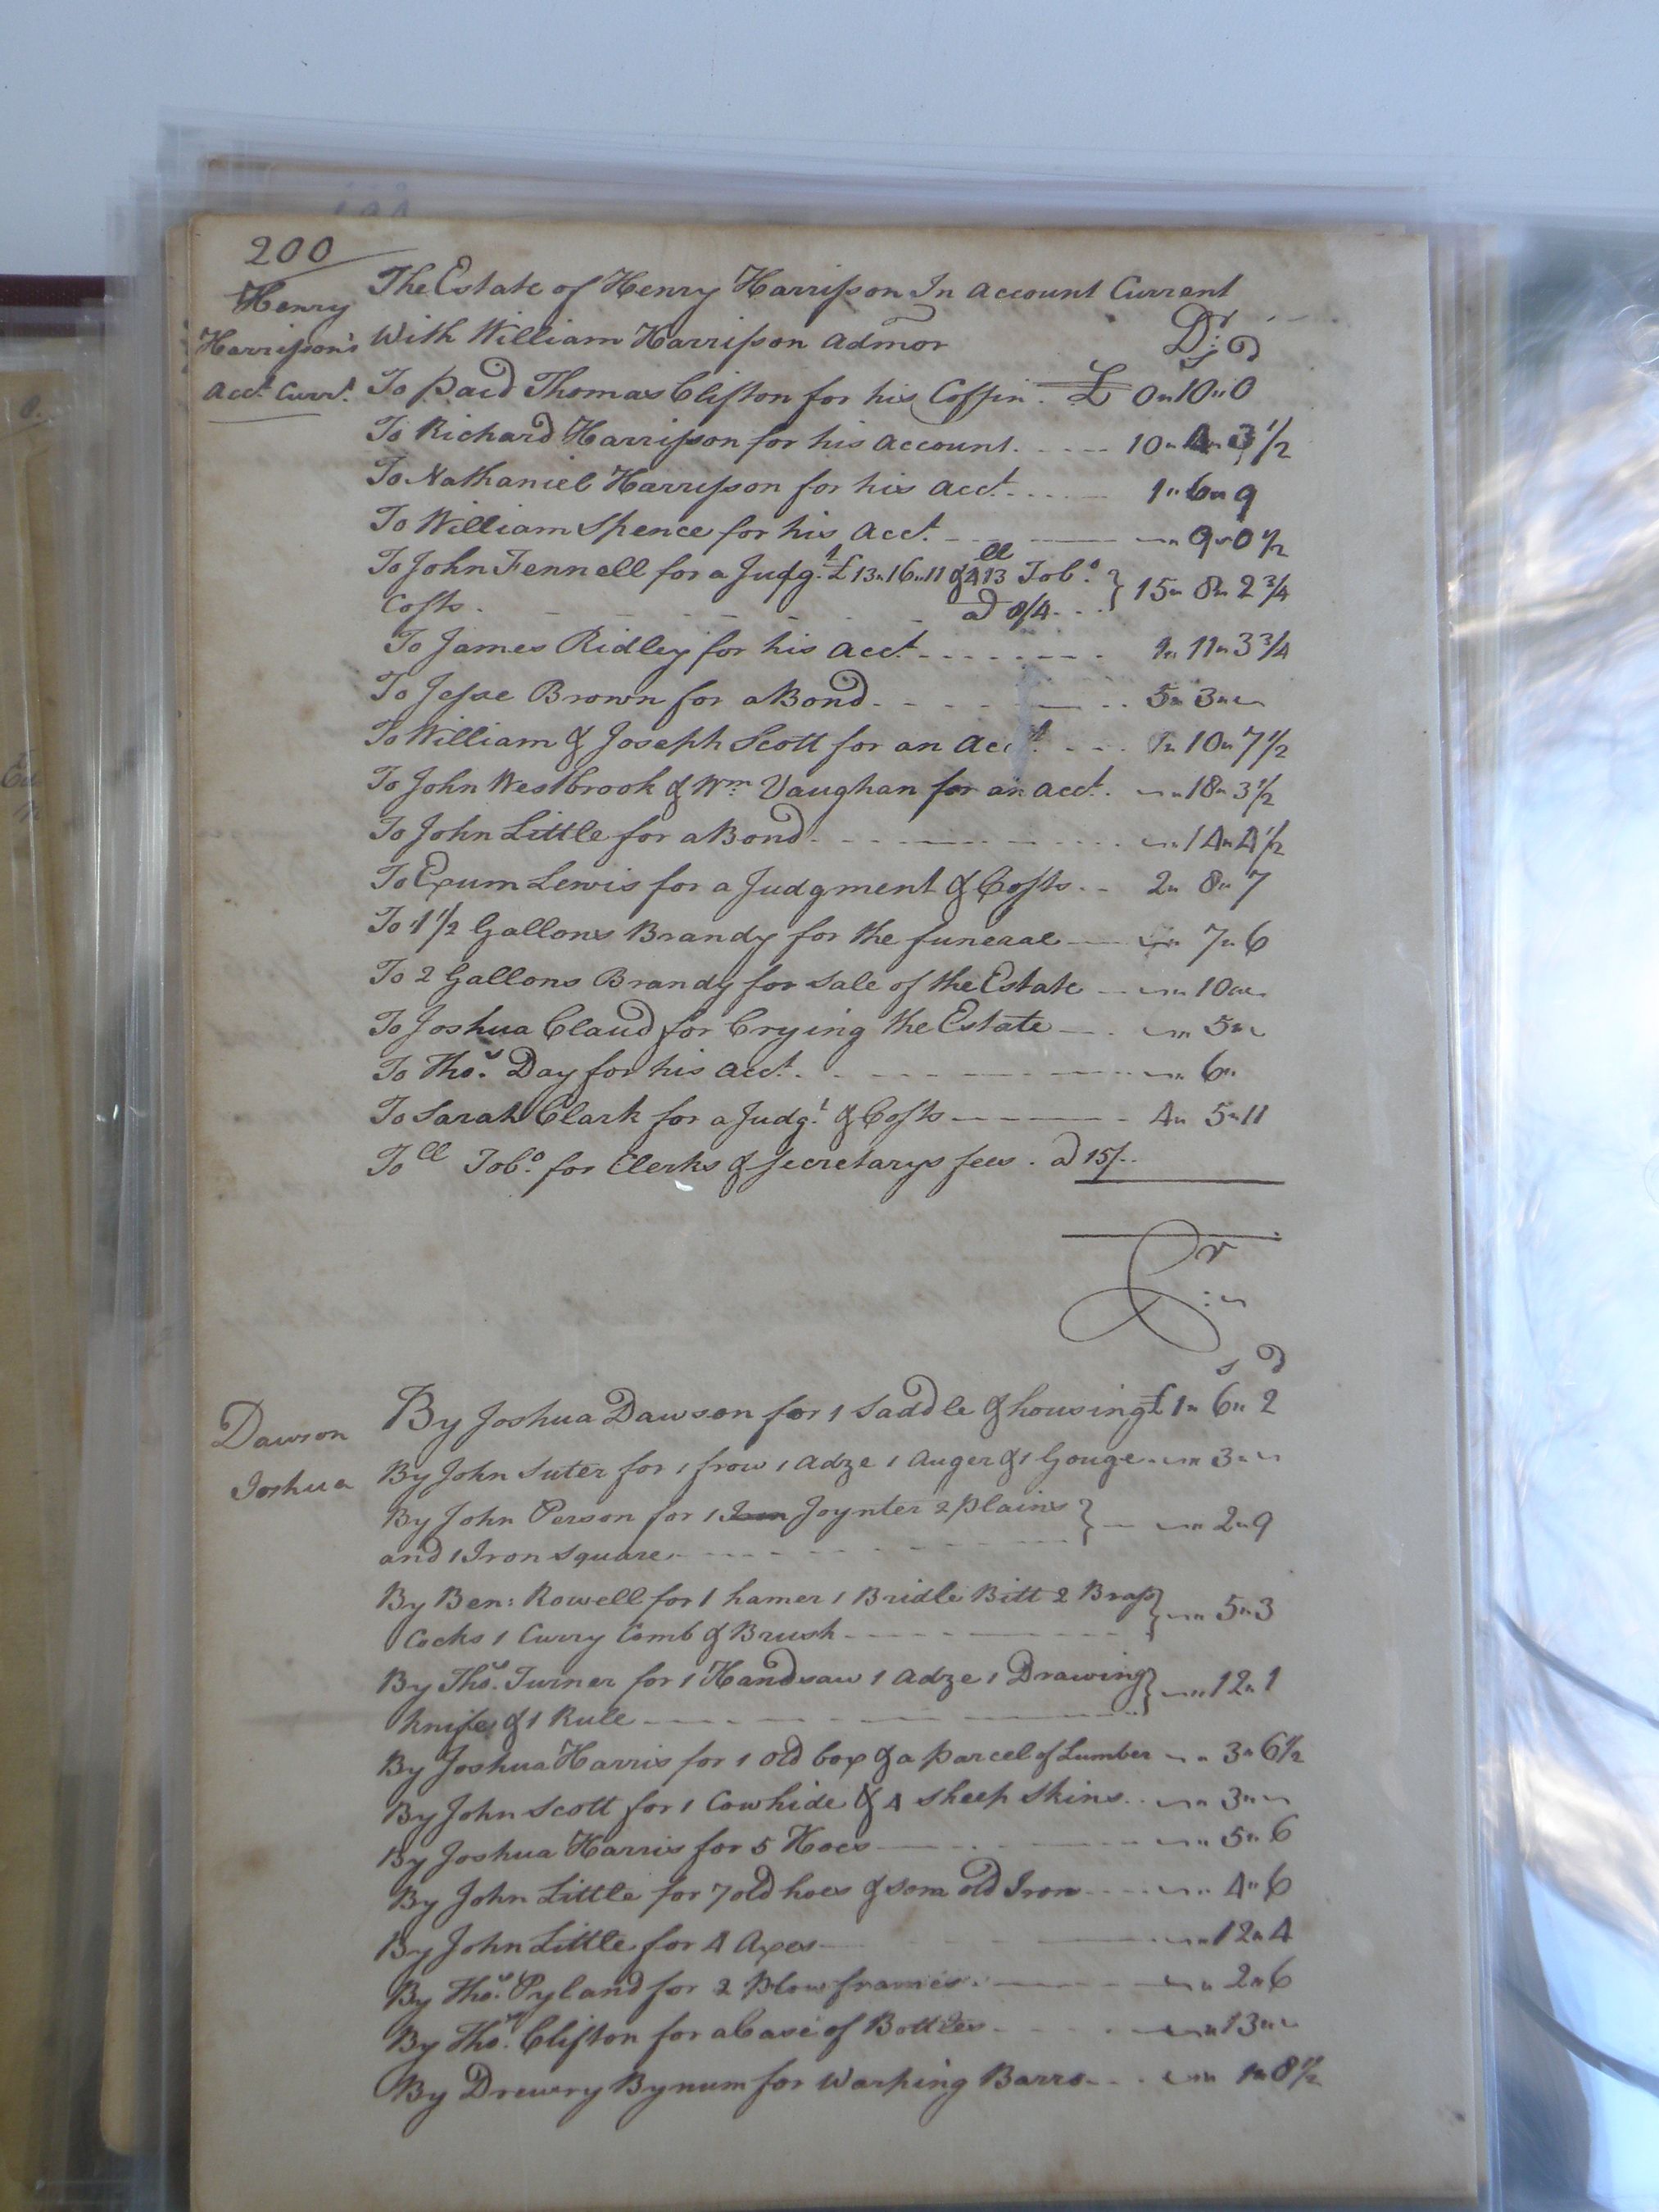 200
Henry
Harrisson's
Acct. Curr.t
The Estate of Henry Harrisson In account Current
With William Harrisson admor Dr
s d
To paid Thomas Clifton for his Coffin. £ 0"10"0
To Richard Harrisson for his account. 10" 4" 3 1/2
To Nathaniel Harrisson for his acct. 1"6"9
To William Spence for his Acct. 9"0 1/2
To John Fennell for a Judg.t £13"16"11 & 413 ll Tob.o } 15" 8" 2 3/4
Costs. ad 8/4
To James Ridley for his acct 1" 11" 3 3/4
To Jesse Brown for a Bond. 5" 3"
To William & Joseph Scott for an Acct. 10" 7 1/2
To John Westbrook & Wm. Vaughan for an acct. "18" 3 1/2
To John Little for a Bond "14"4 1/2
To Exum Lewis for a Judgment & Costs. 2" 8" 7
To 1 1/2 Gallons Brandy for the funeral 7" 6
To 2 Gallons Brandy for sale of the Estate "10"
To Joshua Claud for Crying the Estate " 5"
To Thos. Day for his acct. " 6"
To Sarah Clark for a Judg.t & Costs 4" 5"11
To ll Tob.o for Clerks & secretarys fees. ad 15/.
Cr
s d
Dawson
Joshua
By Joshua Dawson for 1 Saddle & housing £1" 6" 2
By John Suter for 1 frow 1 adze 1 Auger & 1 Gouge " 3"
By John Person for 1 Joynter 2 plains } " 2"9
and 1 Iron Square
By Ben: Rowell for 1 hamer 1 Bridle Bitt 2 Brass } " 5"3
Cocks 1 Curry Comb & Brush
By Thos. Turner for 1 Handsaw 1 adze 1 Drawing } "12"1
knife & 1 Rule
By Joshua Harris for 1 old box & a parcel of Lumber " 3" 6 1/2
By John Scott for 1 Cowhide & 4 sheep skins " 3"
By Joshua Harris for 5 Hoes " 5" 6
By John Little for 7 old hoes & som old Iron " 4" 6
By John Little for 4 Axes "12"4
By Thos. Pyland for 2 Plow frames. " 2"6
By Thos. Clifton for a Case of Bottles "13"
By Drewry Bynum for Warping Barrs " 1"8 1/2